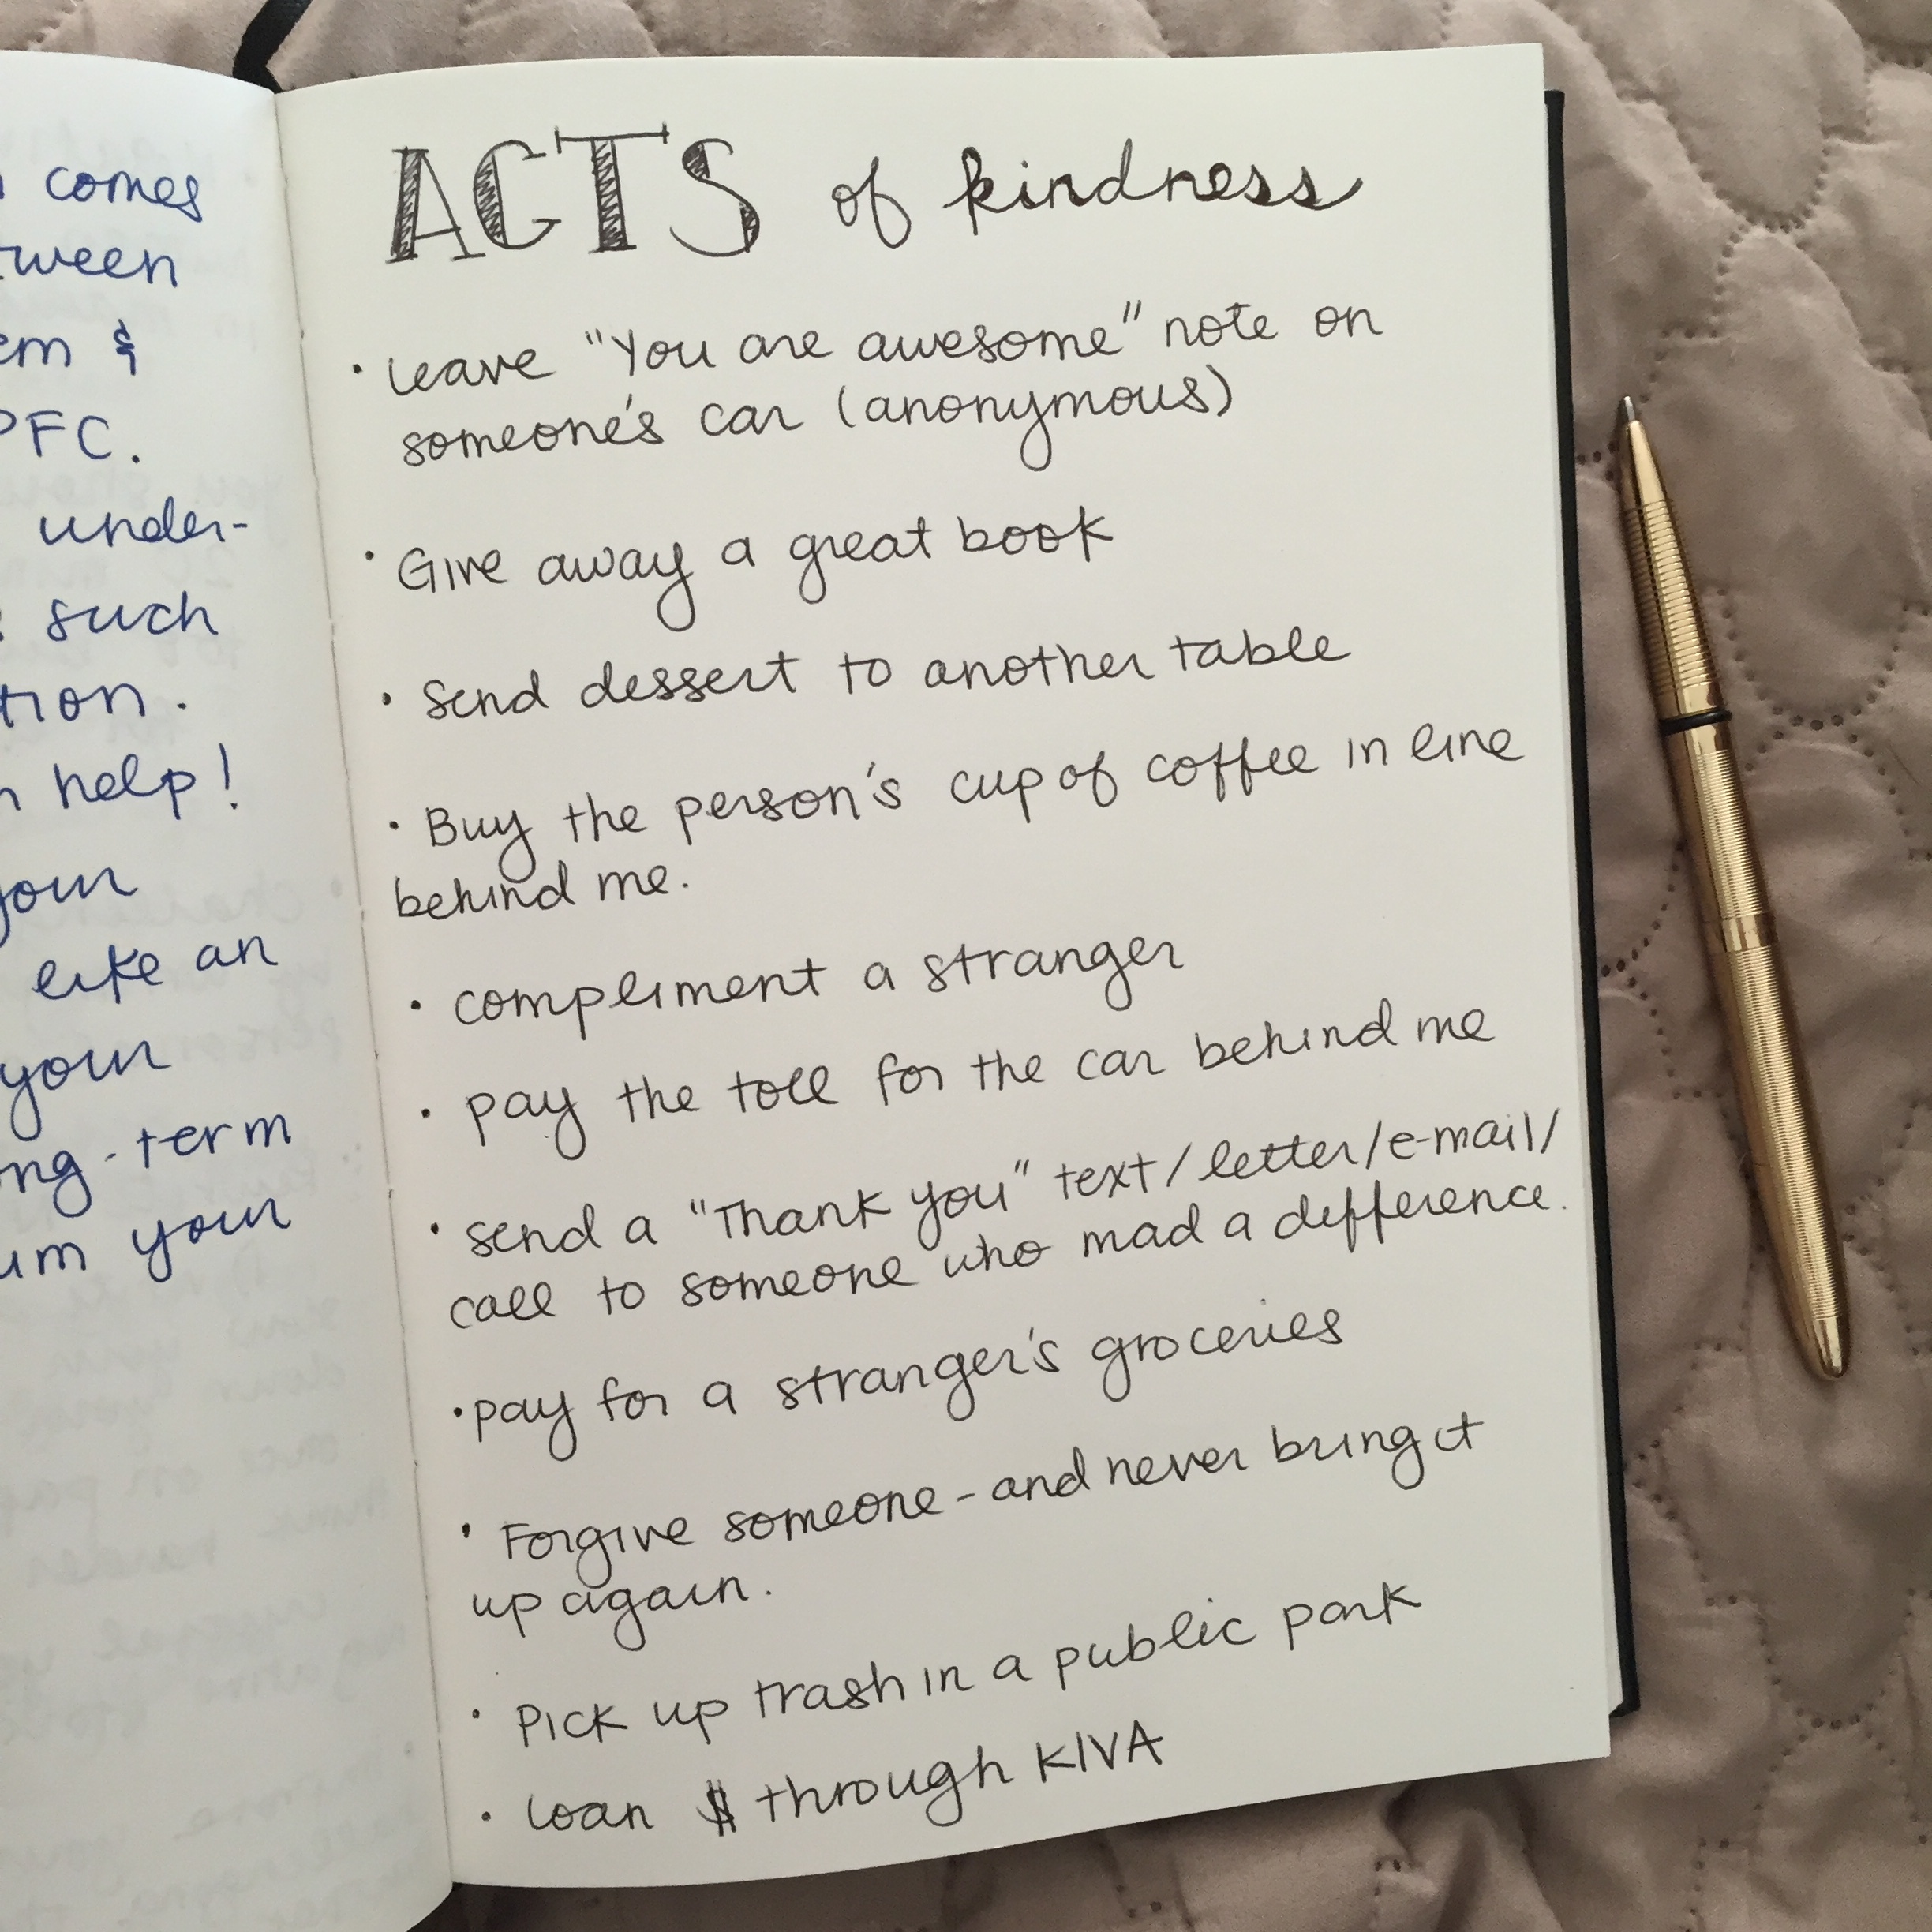 comes
tween
em &
PFC.
under-
such
tion.
help!
your
like an
your
ng-term
um your
ACTS of kindness
• Leave "You are awesome" note on
someone's car (anonymous)
• Give away a great book
• Send dessert to another table
• Buy the person's cup of coffee in line
behind me.
• compliment a stranger
• pay the toll for the car behind me
• send a "Thank you" text/letter/e-mail/
call to someone who mad a difference.
• pay for a stranger's groceries
• Forgive someone - and never bring it
up again.
• Pick up trash in a public park
• Loan $ through KIVA